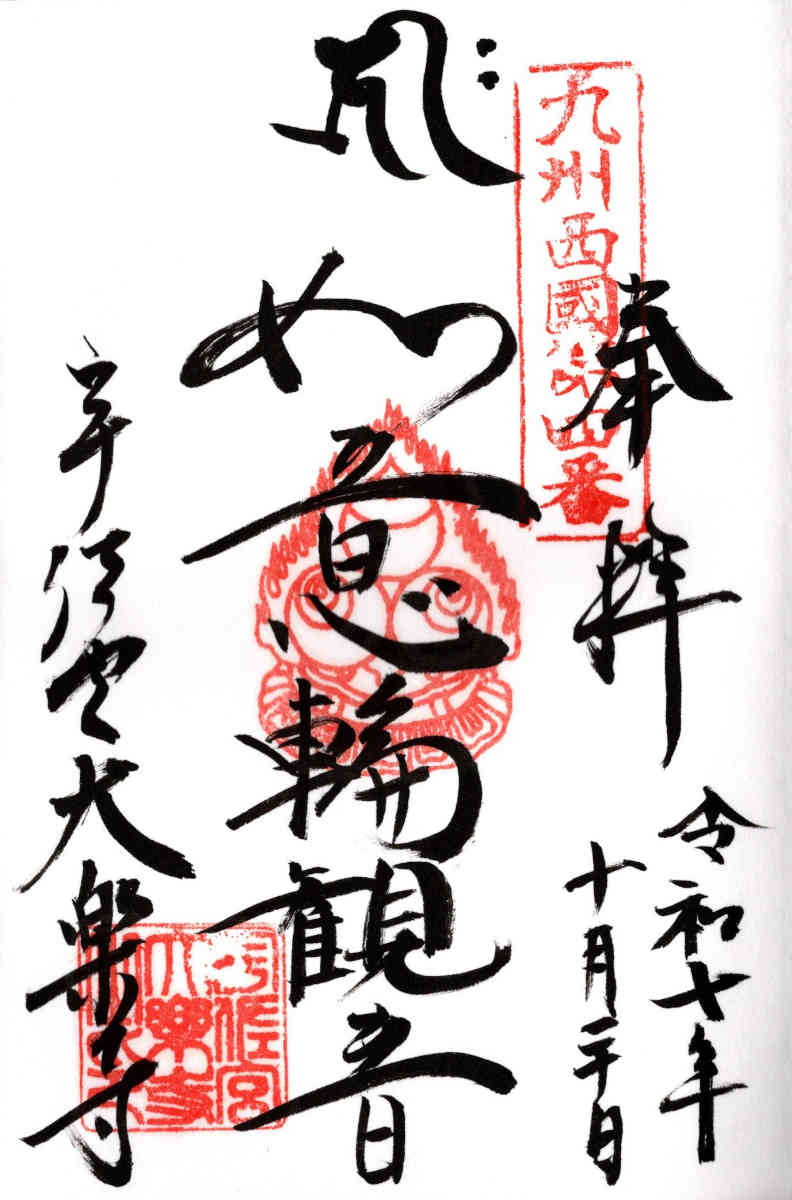 九州西國第四番
奉拝
令和七年
十月二十日
如意輪観音
宇佐宮大楽寺